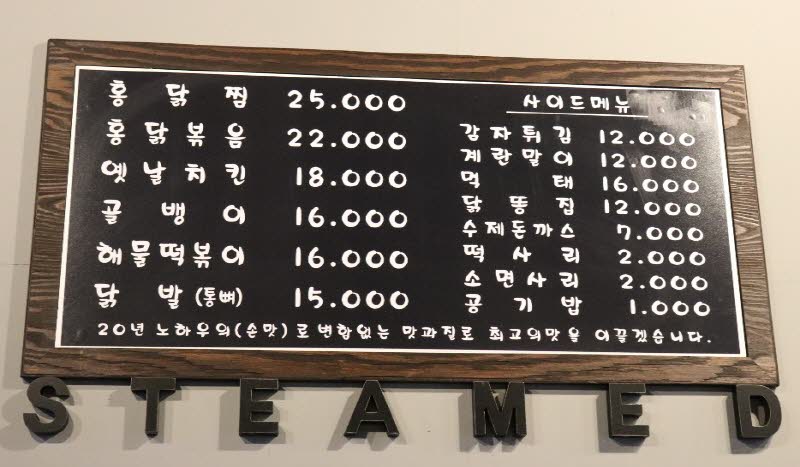 홍 닭 찜 25.000
홍 닭 볶 음 22.000
옛 날 치 킨 18.000
골 뱅 이 16.000
해 물 떡 볶 이 16.000
닭 발 (통뼈) 15.000
사이드메뉴
감 자 튀 김 12.000
계 란 말 이 12.000
먹 태 16.000
닭 똥 집 12.000
수 제 돈 까 스 7.000
떡 사 리 2.000
소 면 사 리 2.000
공 기 밥 1.000
20년 노하우의(손맛)로 변함없는 맛과질로 최고의맛을 이끌겠습니다.
STEAMED